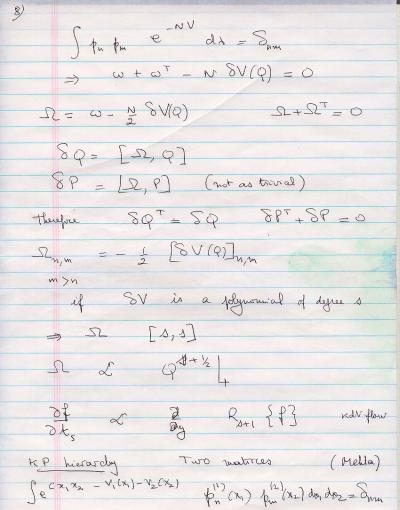 8)
∫ pn pm e^{-NV} dλ = δnm
⇒ ω + ω^T − N δV(Q) = 0
Ω = ω − N/2 δV(Q)    Ω + Ω^T = 0
δQ = [Ω, Q]
δP = [Ω, P] (not as trivial)
Therefore δQ^T = δQ    δP^T + δP = 0
Ω_{n,m} = − 1/2 [δV(Q)]_{n,m}
m > n
if δV is a polynomial of degree s
⇒ Ω [s, s]
Ω ∝ Q^{s+1/2}|_+
∂f/∂t_s ∝ ∂/∂y R_{s+1} {f}    KdV flow
KP hierarchy    Two matrices (Mehta)
∫ e^{c x1 x2 − V1(x1) − V2(x2)} p_n^{(1)}(x1) p_m^{(2)}(x2) dx1 dx2 = δnm